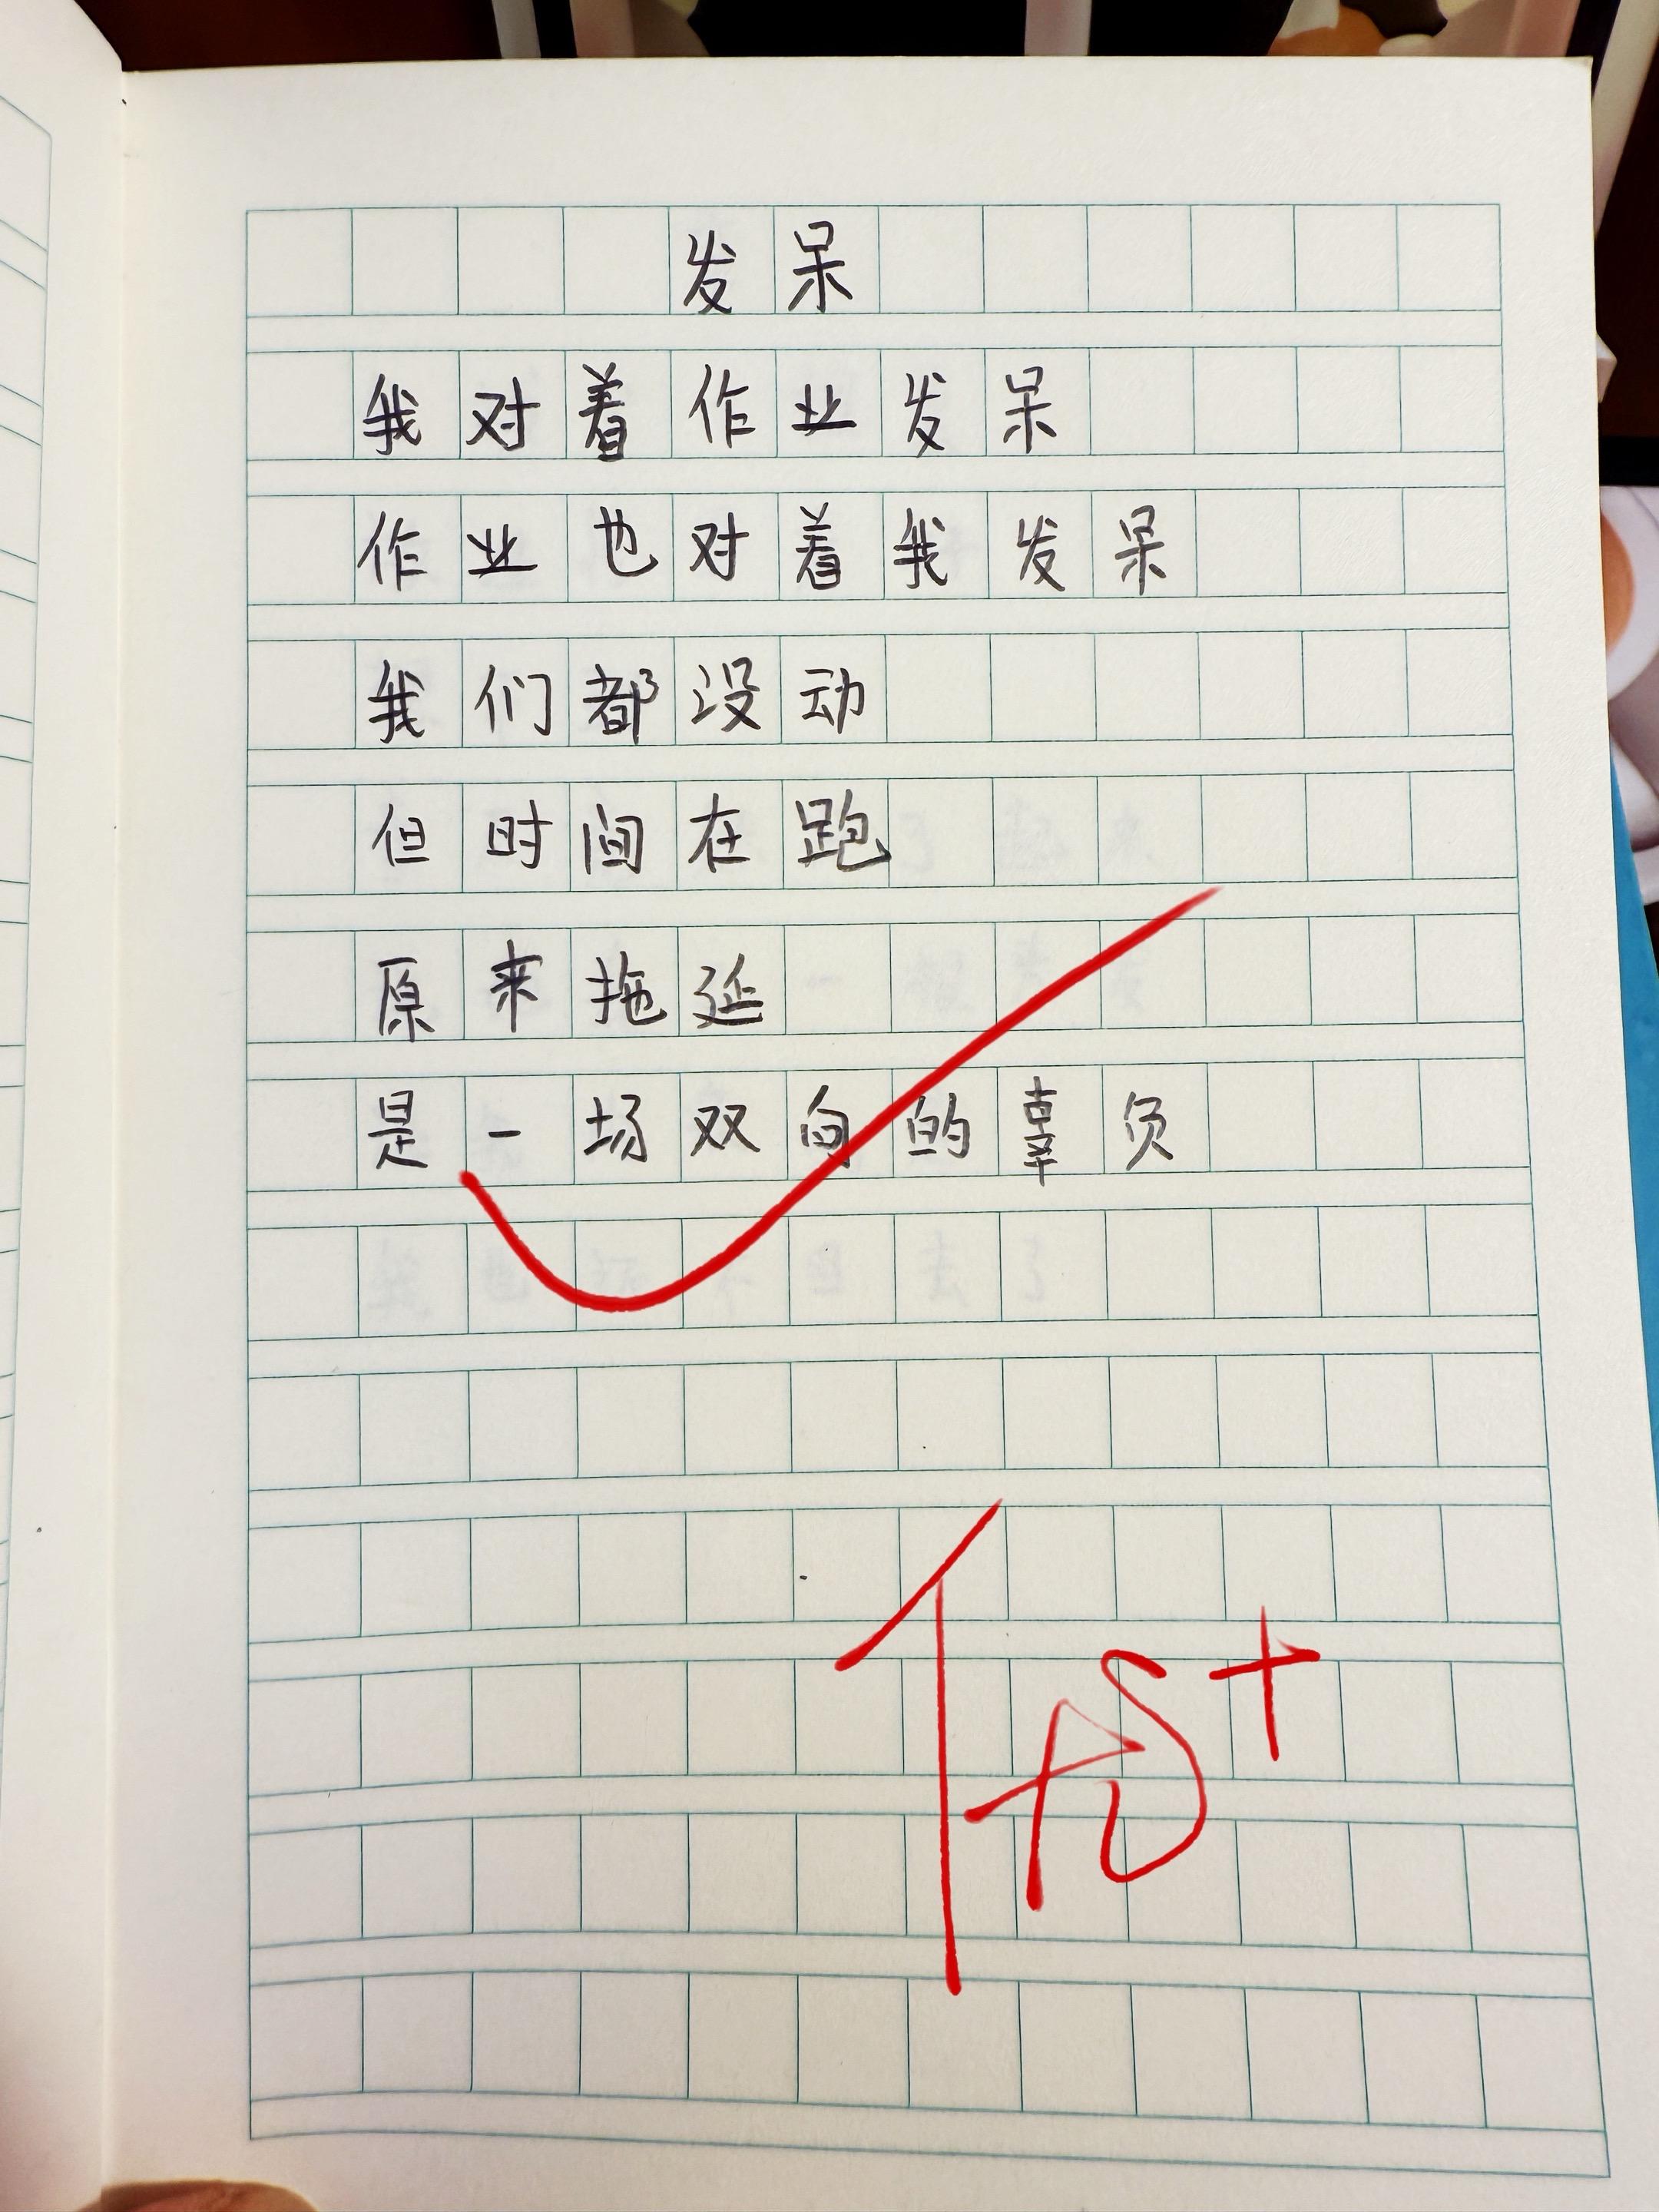 发呆
我对着作业发呆
作业也对着我发呆
我们都没动
但时间在跑
原来拖延
是一场双向的辜负